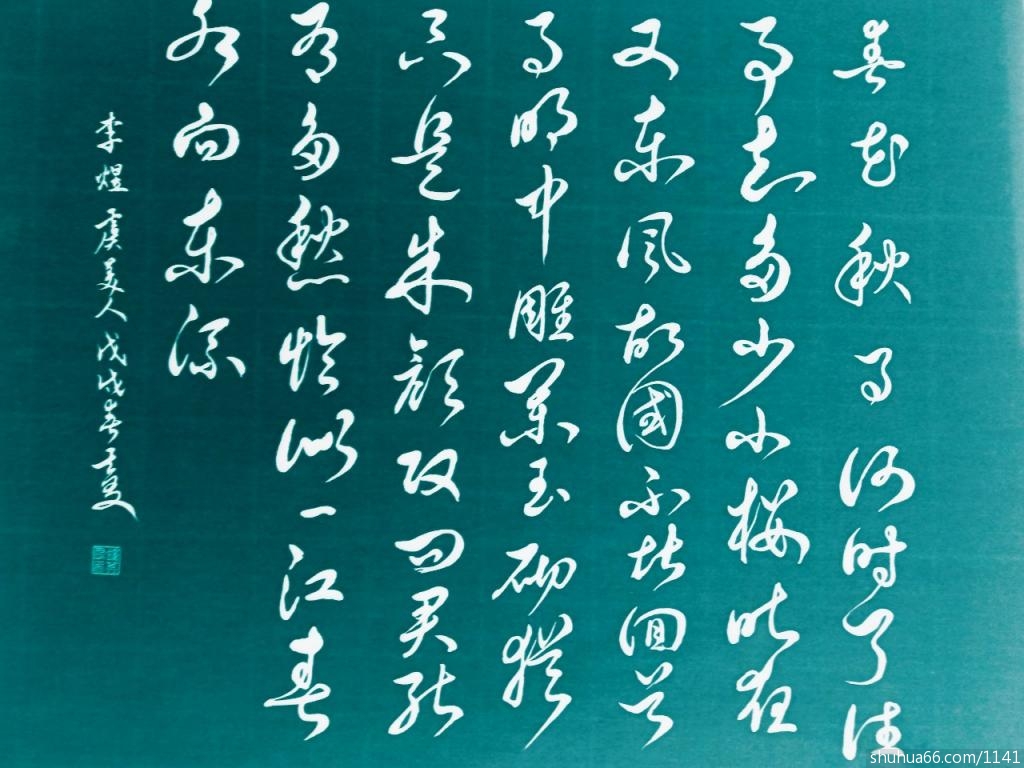 春花秋月何时了往
事知多少小楼昨夜
又东风故國不堪回首
月明中雕阑玉砌犹
只是朱颜改问君能
有多愁恰似一江春
水向东流
李煜虞美人戊戌春夏
shuhua66.com/1141